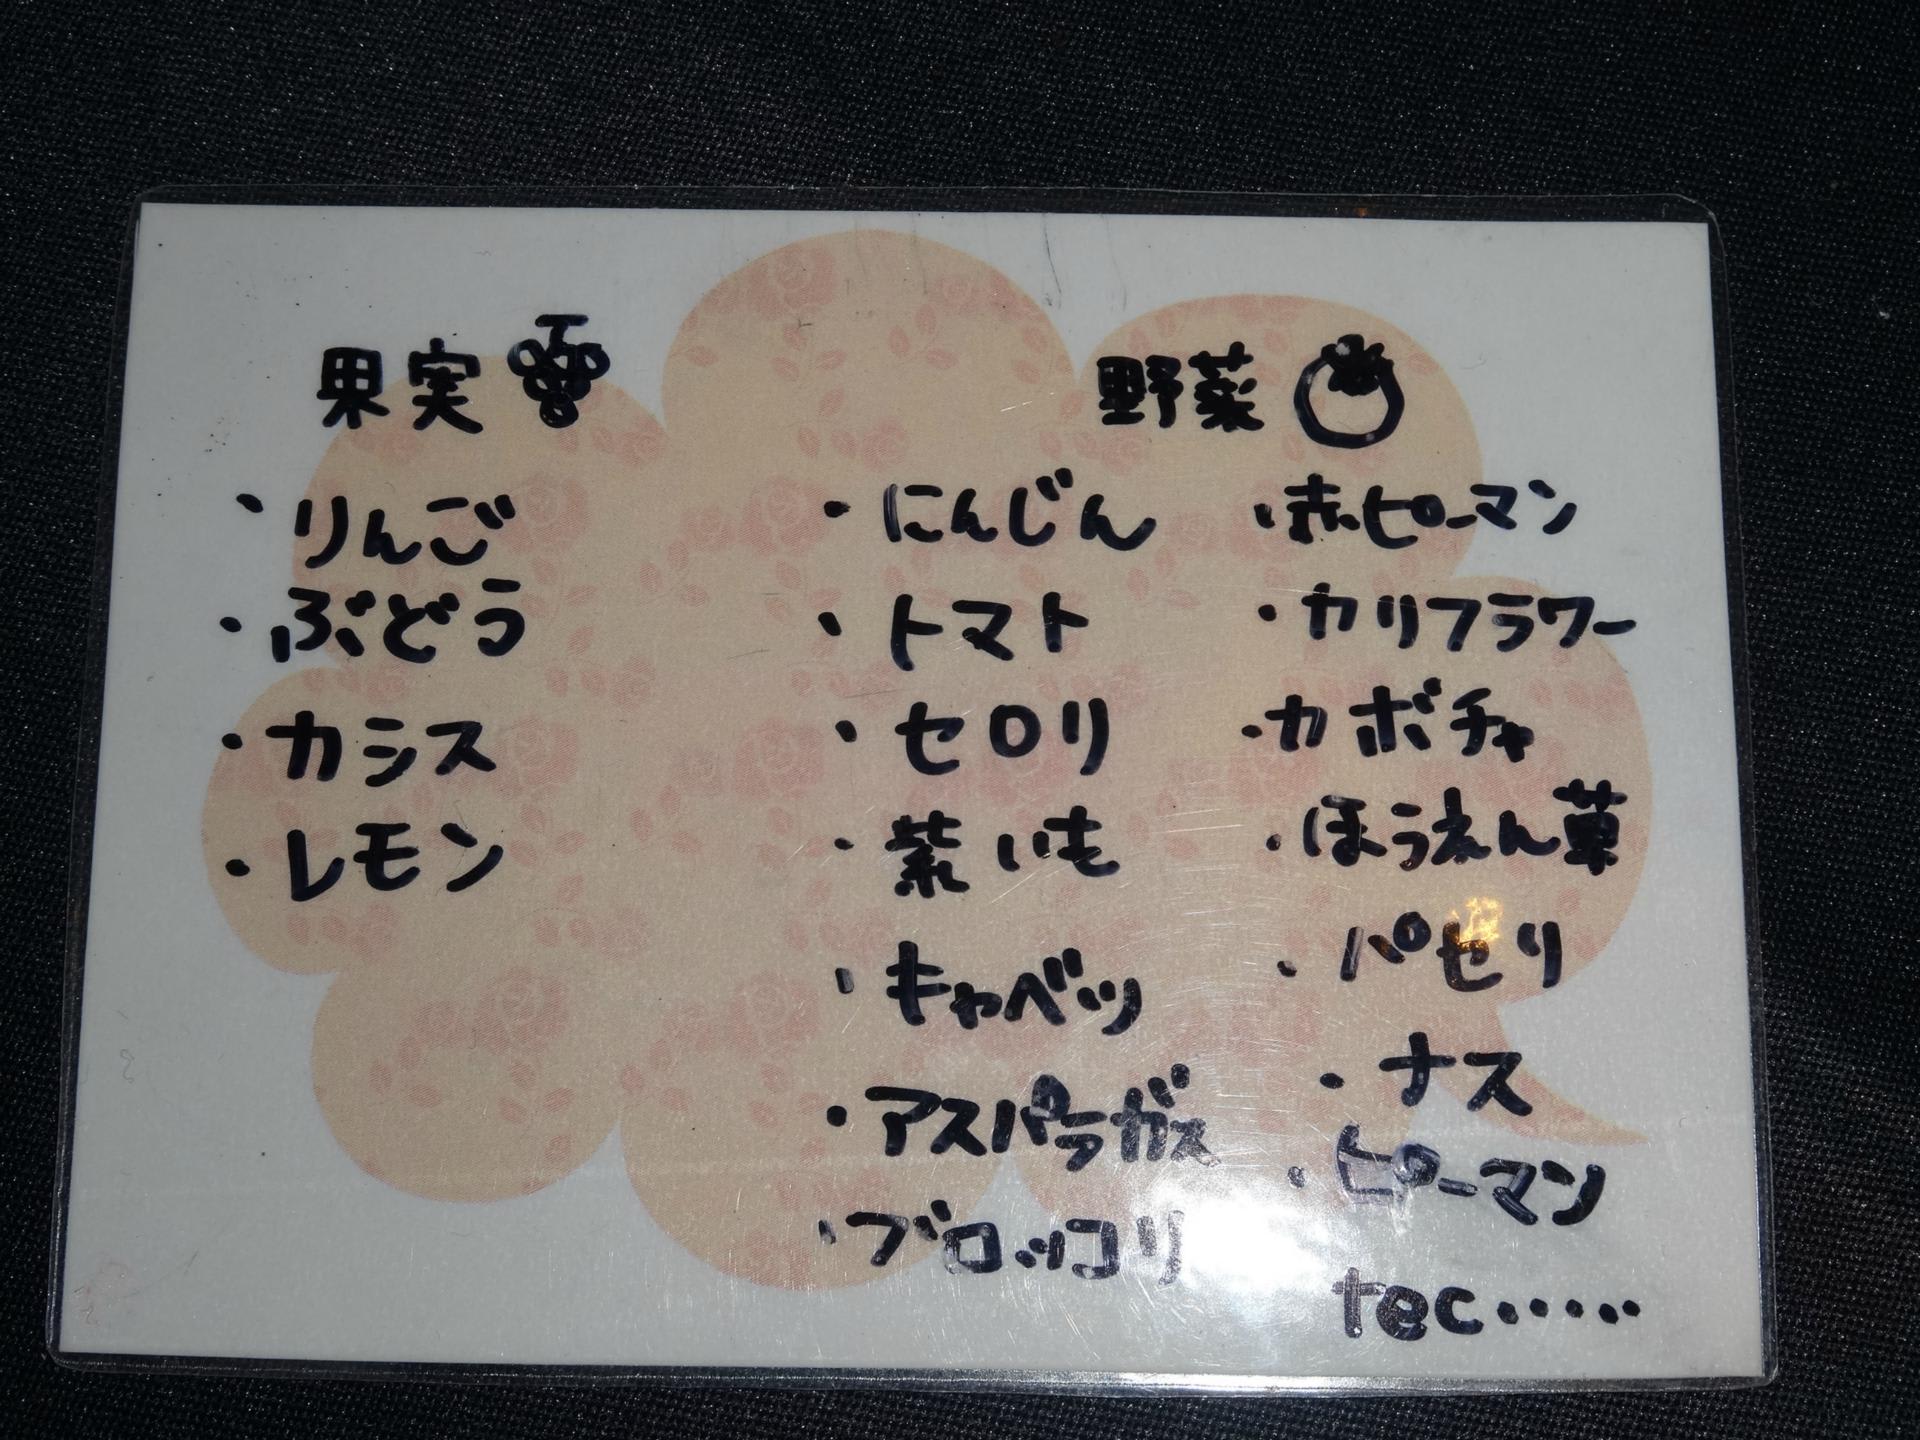 果実
・りんご
・ぶどう
・カシス
・レモン
野菜
・にんじん
・トマト
・セロリ
・紫いも
・キャベツ
・アスパラガス
・ブロッコリ
・赤ピーマン
・カリフラワー
・カボチャ
・ほうえん草
・パセリ
・ナス
・ピーマン
tec・・・・・